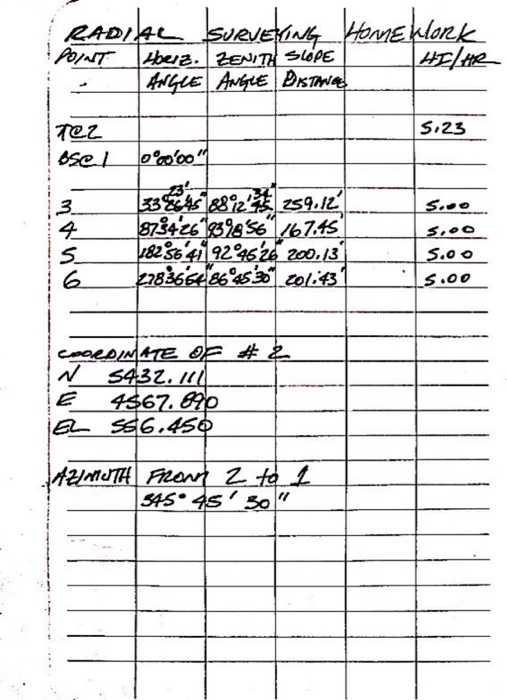 RADIAL SURVEYING HOMEWORK
POINT HORIZ. ZENITH SLOPE HI/HR
ANGLE ANGLE DISTANCE
TC2 5.23
BSC1 0°00'00"
23' 34"
3 33° 45" 88°12' 259.12' 5.00
4 87°34'26" 93°18'56" 167.45' 5.00
5 182°56'41" 92°46'26" 200.13' 5.00
6 278°36'54" 86°45'30" 201.43' 5.00
COORDINATE OF # 2
N 5432.111
E 4567.890
EL 556.450
AZIMUTH FROM 2 to 1
345° 45' 30"